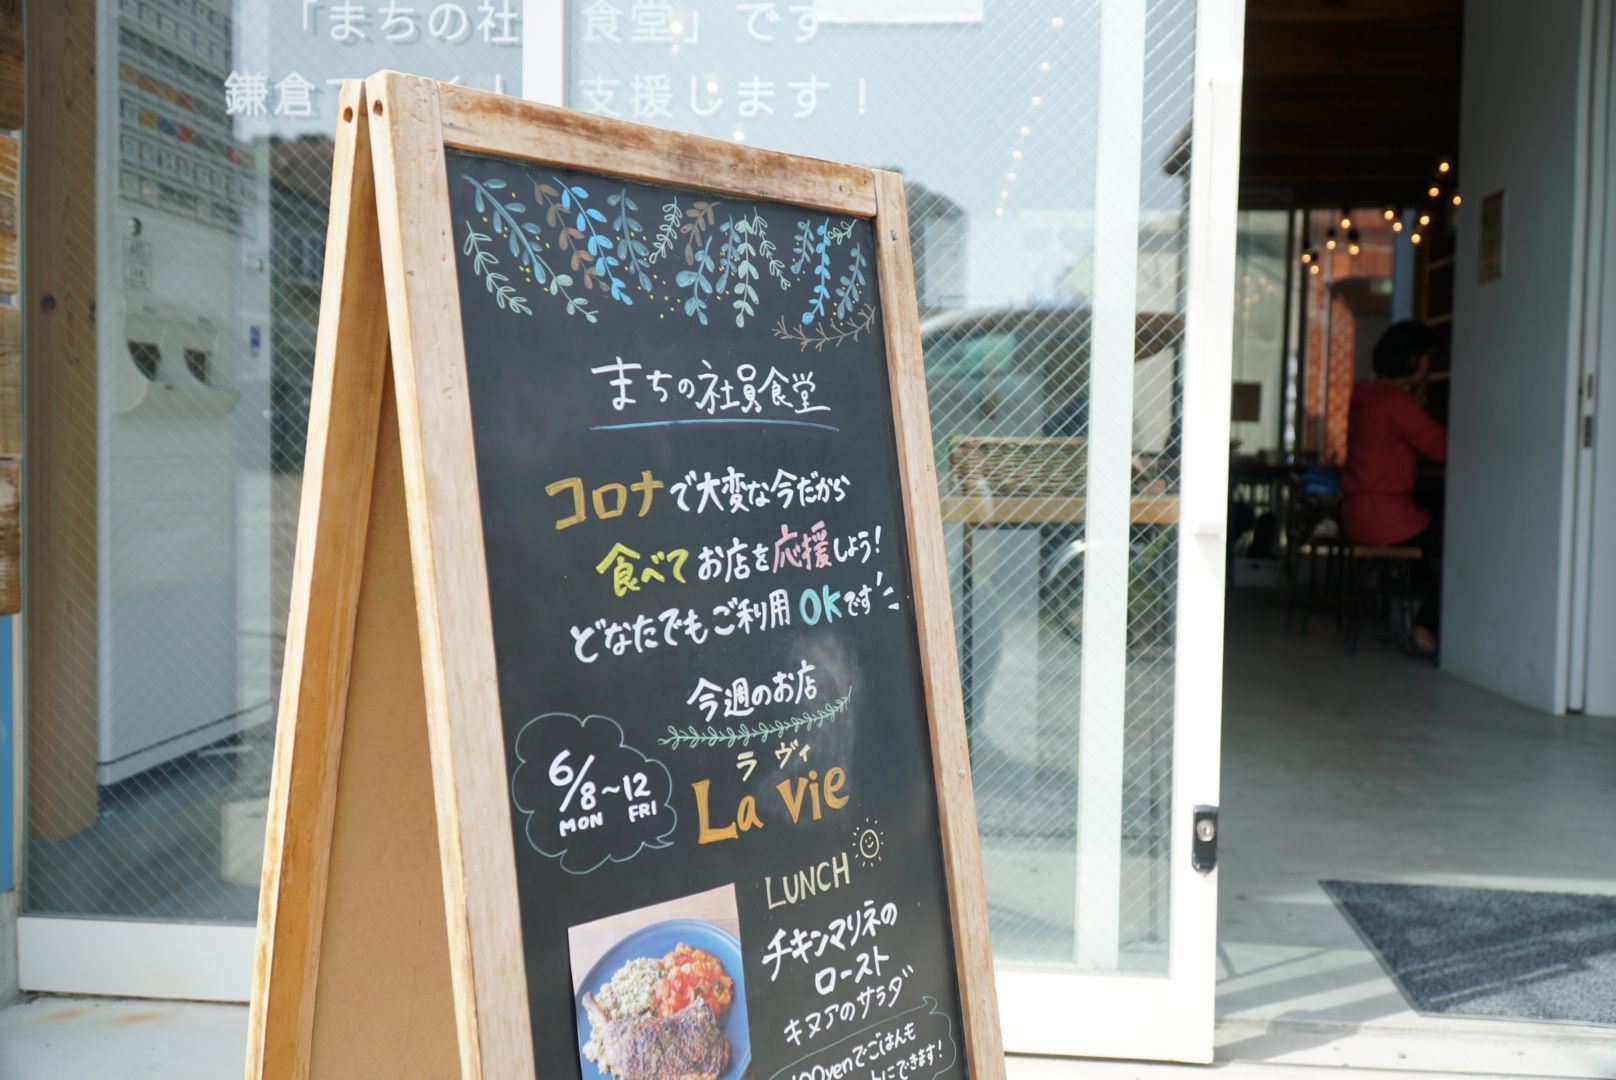 「まちの社 食堂」です
鎌倉で 支援します！
まちの社員食堂
コロナで大変な今だから
食べてお店を応援しよう！
どなたでもご利用OKです
今週のお店
6/8〜12
MON FRI
ラ ヴィ
La vie
LUNCH
チキンマリネの
ロースト
キヌアのサラダ
100yenでごはんも
にできます！